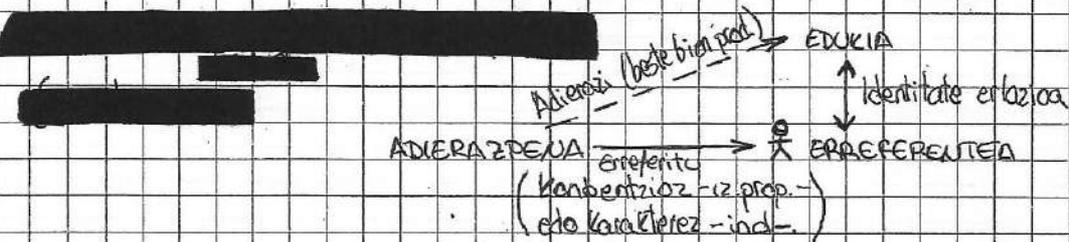 Adierazi (beste bien prod.) EDUKIA
Identitate erlazioa
ADIERAZPENA Erreferitu ERREFERENTEA
(Konbentzioz -iz.prop.-
edo karakterez -ind-.)